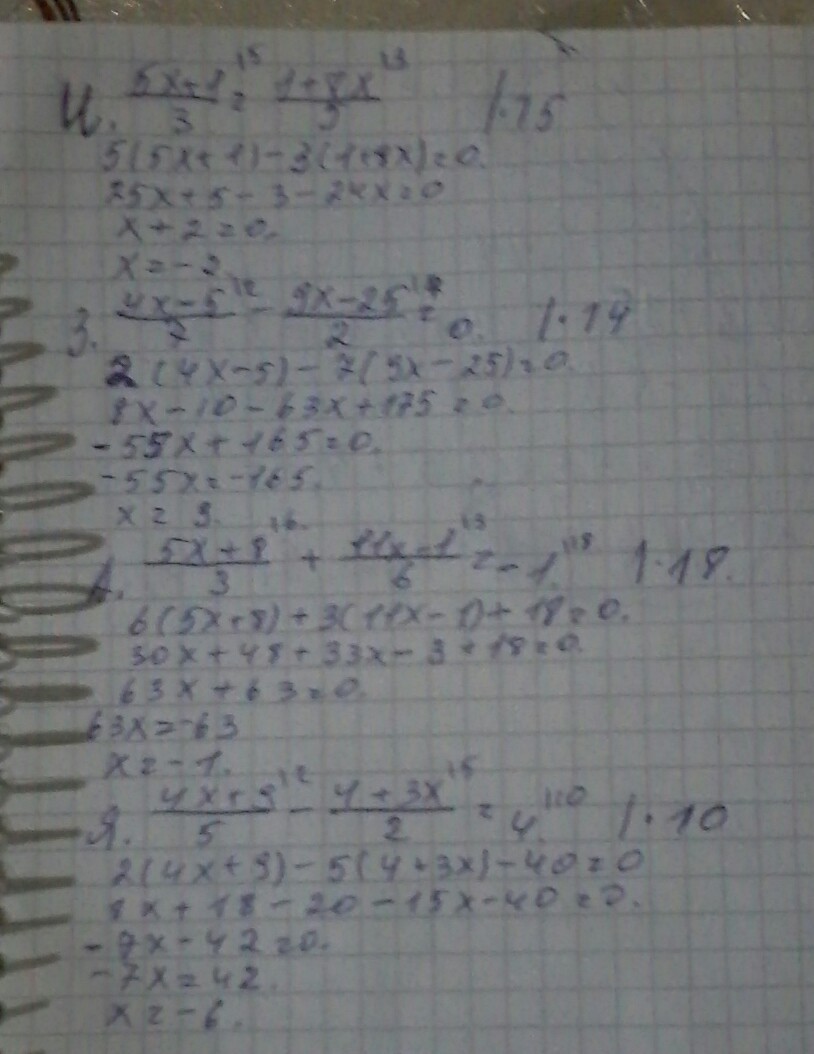 И. (5x+1)/3 |5 = (1+8x)/5 |3 |·15
5(5x+1)-3(1+8x)=0.
25x+5-3-24x=0
x+2=0.
x=-2.
З. (4x-5)/7 |2 - (9x-25)/2 |7 = 0. |·14
2(4x-5)-7(9x-25)=0.
8x-10-63x+175=0.
-55x+165=0.
-55x=-165.
x=3.
А. (5x+8)/3 |6 + (11x-1)/6 |3 = -1. |18 |·18.
6(5x+8)+3(11x-1)+18=0.
30x+48+33x-3+18=0.
63x+63=0.
63x=-63
x=-1.
Я. (4x+9)/5 |2 - (4+3x)/2 |5 = 4. |10 |·10
2(4x+9)-5(4+3x)-40=0
8x+18-20-15x-40=0.
-7x-42=0.
-7x=42.
x=-6.